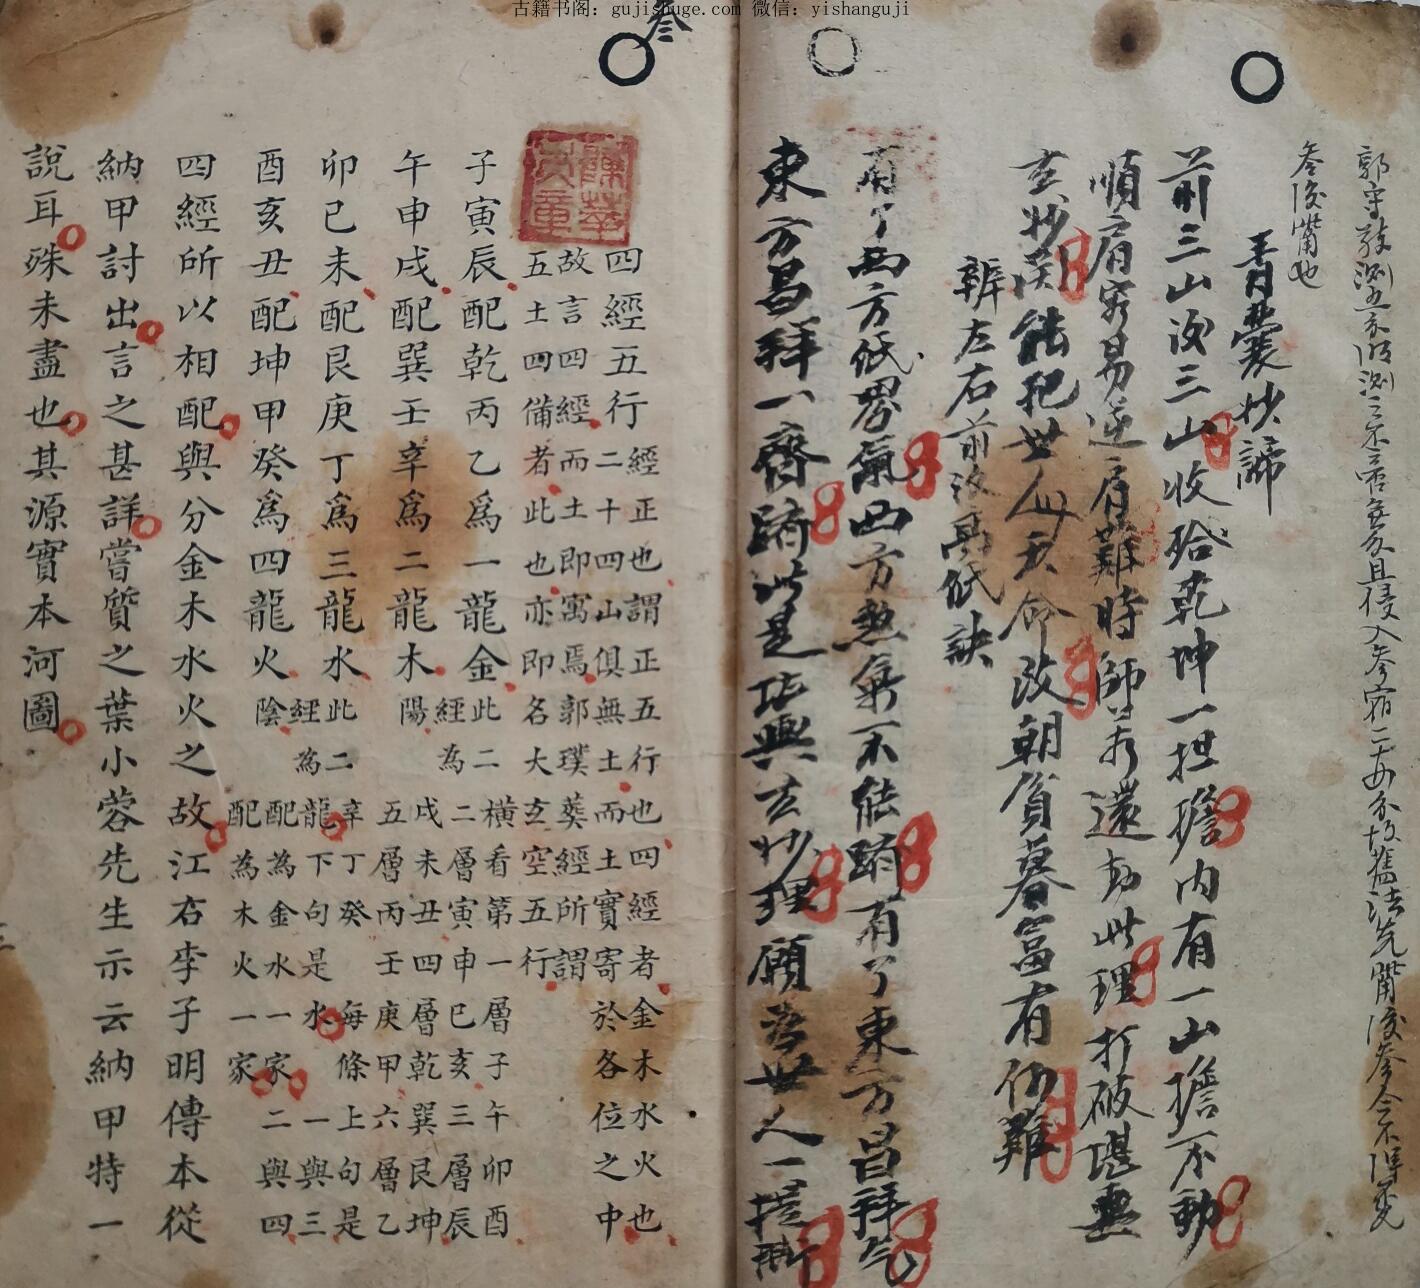 古籍书阁：gujishuge.com 微信：yishanguji
叁
郭守敬測五分後測之不啻無又且侵入參宿二十四分故舊法先觜後參今不得不
參後觜也
青囊妙諦
前三山後三山收拾乾坤一担擔內有一山擔不動
順肩容易逆肩難時師若還動此理打破堪輿
玄妙関能把世人母天命改朝貧暮富有何難
辨左右前後高低訣
有了西方低男氣西方煞氣不能騎有了東方昌拜氣
東方昌拜一齊騎此是堪輿玄妙理願為世人一提斯
四經五行 經正也謂正五行也四經者金木水火也
二十四山俱無土而土實寄於各位之中
故言四經而土即寓焉郭璞葬經所謂
五土四備者此也亦即名大玄空五行
子寅辰配乾丙乙為一龍金 此二經為
午申戌配巽壬辛為二龍木 陽
卯巳未配艮庚丁為三龍水 此二經為
酉亥丑配坤甲癸為四龍火 陰
橫看第一層子午卯酉
二層寅申巳亥三層辰
戌未丑四層乾巽艮坤
五層丙壬庚甲六層乙
辛丁癸 每條上句是
龍下句是水 一與三
配為金水一家二與四
配為木火一家
四經所以相配與分金木水火之故江右李子明傳本從
納甲討出言之甚詳嘗質之葉小蓉先生示云納甲特一
說耳殊未盡也其源實本河圖